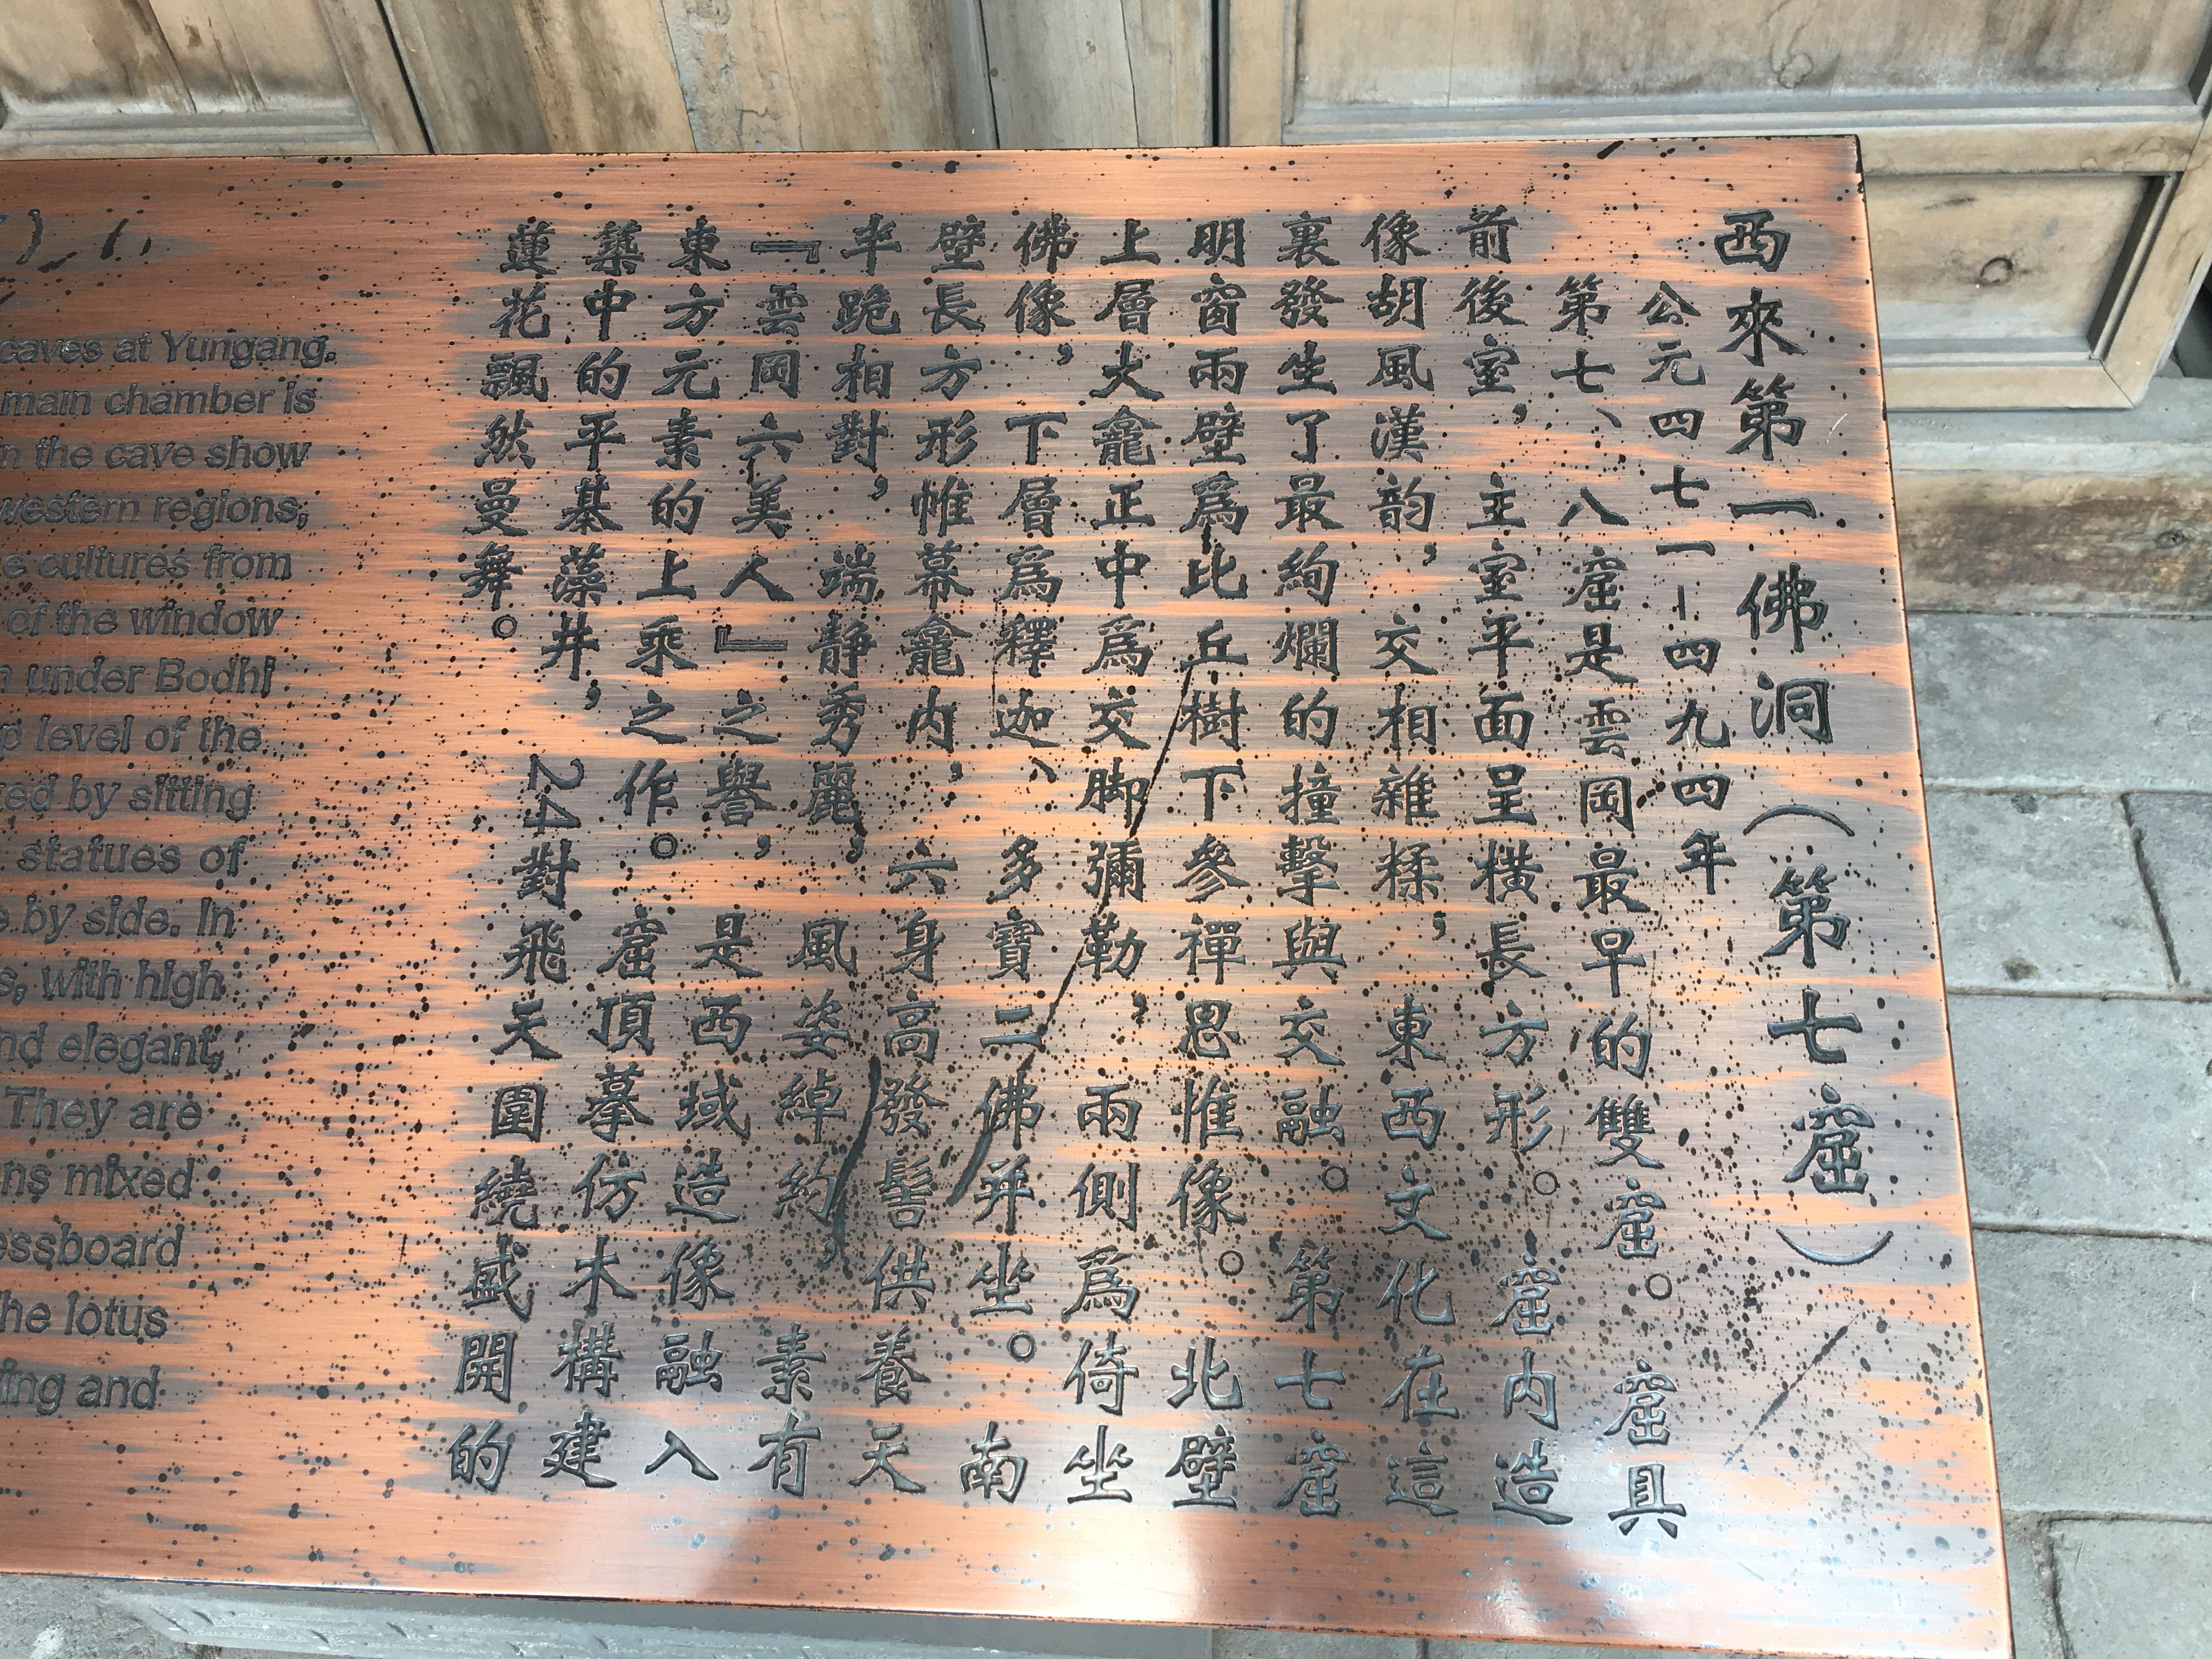 西來第一佛洞(第七窟)
公元四七一-四九四年
第七、八窟是雲岡最早的雙窟。窟具
前後室,主室平面呈橫長方形。窟内造
像胡風漢韵,交相雜糅,東西文化在這
裏發生了最絢爛的撞擊與交融。第七窟
明窗兩壁爲比丘樹下參禪思惟像。北壁
上層大龕正中爲交脚彌勒,兩側爲倚坐
佛像,下層爲釋迦、多寶二佛并坐。南
壁長方形帷幕龕内,六身高發髻供養天
半跪相對,端静秀麗,風姿綽約,素有
『雲岡六美人』之譽,是西域造像融入
東方元素的上乘之作。窟頂摹仿木構建
築中的平棊藻井,24對飛天圍繞盛開的
蓮花飄然曼舞。
caves at Yungang.
main chamber is
n the cave show
western regions,
e cultures from
of the window
n under Bodhi
p level of the
ed by sitting
statues of
e by side. In
s, with high
nd elegant,
They are
ns mixed
essboard
he lotus
fing and